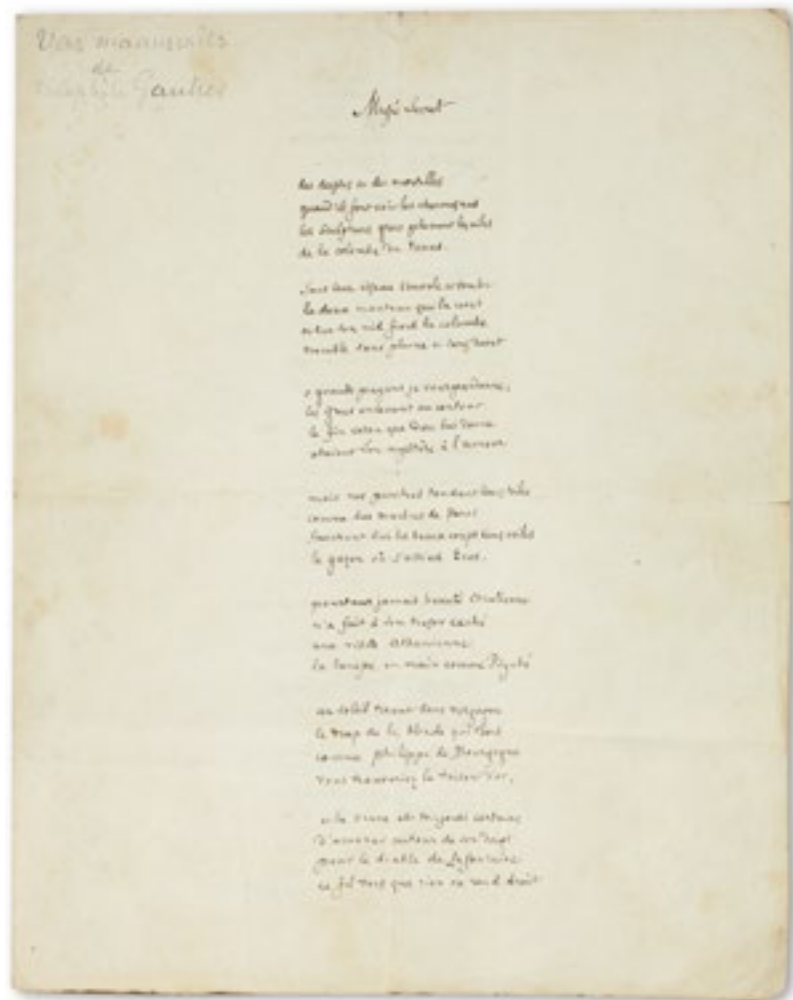 Vers manuscrits
de
Théophile Gautier
Musée secret
des déesses et des mortelles
quand ils font voir les charmes nus
les sculpteurs grecs plument les ailes
de la colombe de Vénus.
sous leur ciseau s'envole et tombe
le doux manteau qui la revêt
et sur son nid froid la colombe
tremble sans plume et sans duvet
o grands payens je vous pardonne,
les grecs enlevant au contour
le fin coton que Dieu lui donne
otaient son mystère à l'amour
mais nos peintres tondant leurs toiles
comme des marbres de Paros
fauchent sur les beaux corps sans voiles
le gazon où s'assied Eros.
pourtant jamais beauté chrétienne
n'a fait à son trésor caché
une visite athénienne
la lampe en main comme Psyché
au soleil tirant sans vergogne
le drap de la blonde qui dort
comme philippe de Bourgogne
vous trouveriez la toison d'or,
et la brune est toujours certaine
d'amener autour de son doigt
pour le diable de Lafontaine
ce fil tors que rien ne rend droit